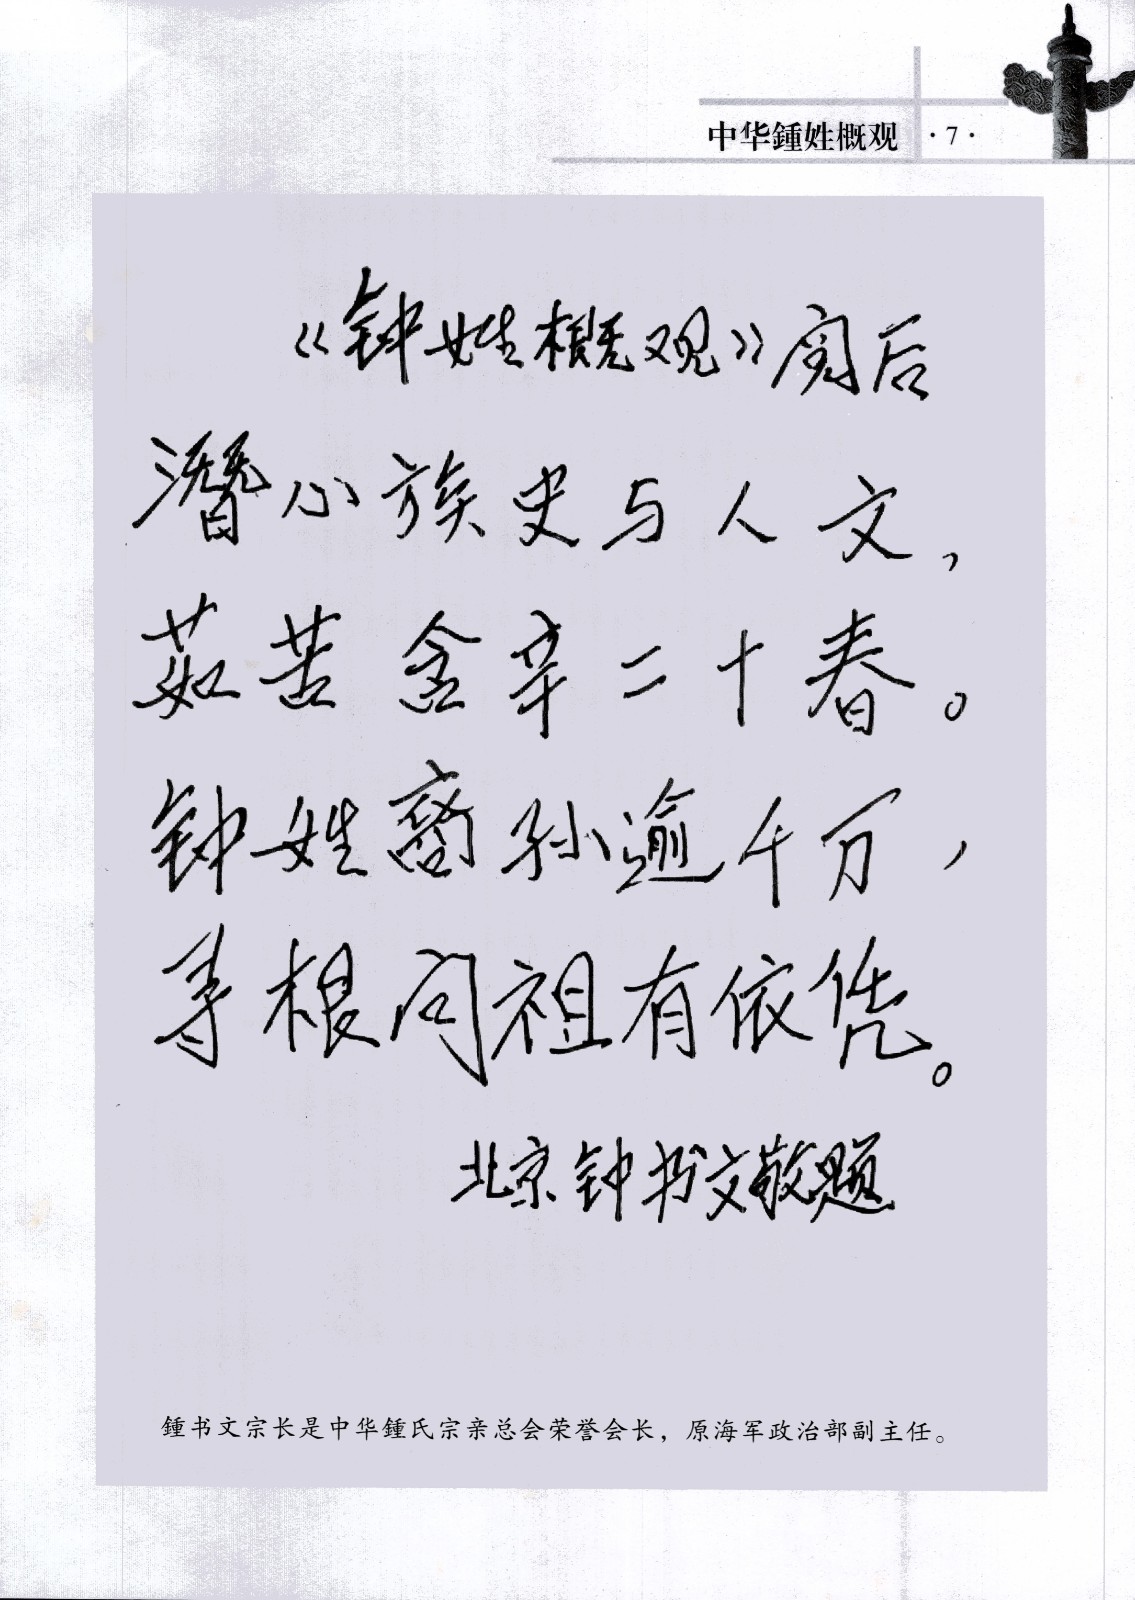 中华鍾姓概观 ·7·
《钟姓概观》阅后
潜心族史与人文，
茹苦含辛二十春。
钟姓裔孙逾千万，
寻根问祖有依凭。
北京钟书文敬题
鍾书文宗长是中华鍾氏宗亲总会荣誉会长，原海军政治部副主任。